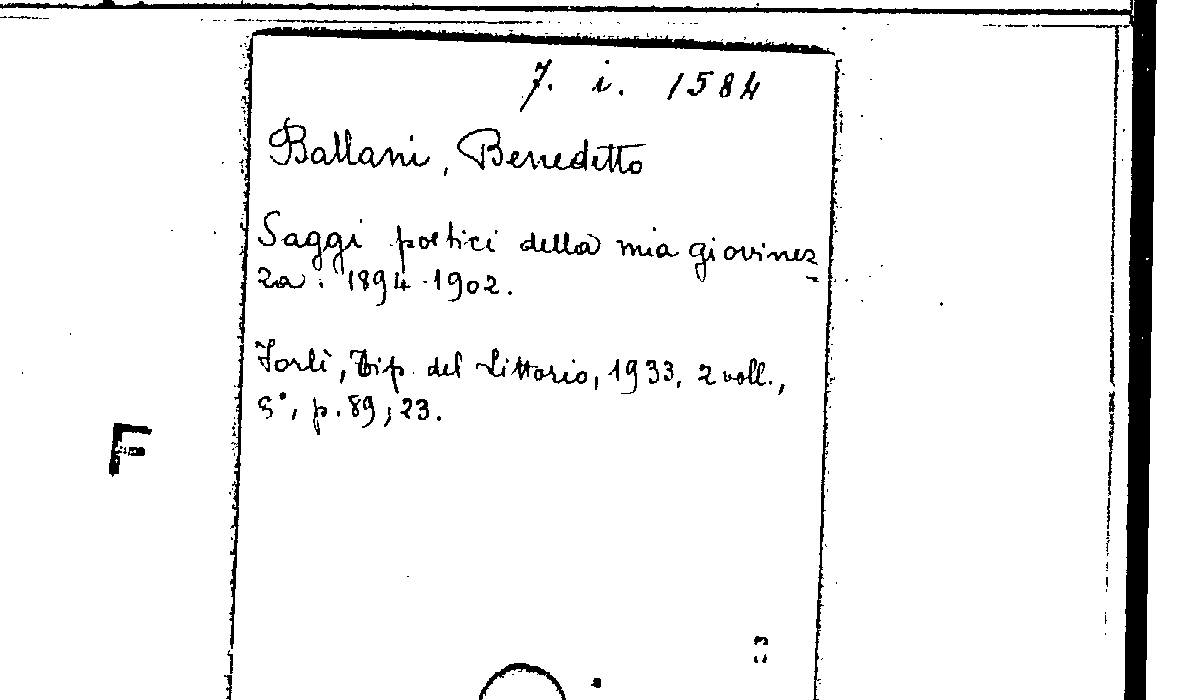 7. i. 1584
Ballani, Benedetto
Saggi poetici della mia giovinez
za. 1894-1902.
Forlì, Tip. del Littorio, 1933, 2 voll.,
8°, p. 89; 23.
F